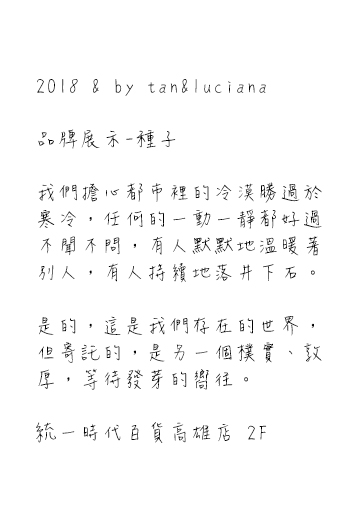 2018 & by tan&luciana
品牌展示-種子
我們擔心都市裡的冷漠勝過於
寒冷，任何的一動一靜都好過
不聞不問，有人默默地溫暖著
別人，有人持續地落井下石。
是的，這是我們存在的世界，
但寄託的，是另一個樸實、敦
厚，等待發芽的嚮往。
統一時代百貨高雄店 2F